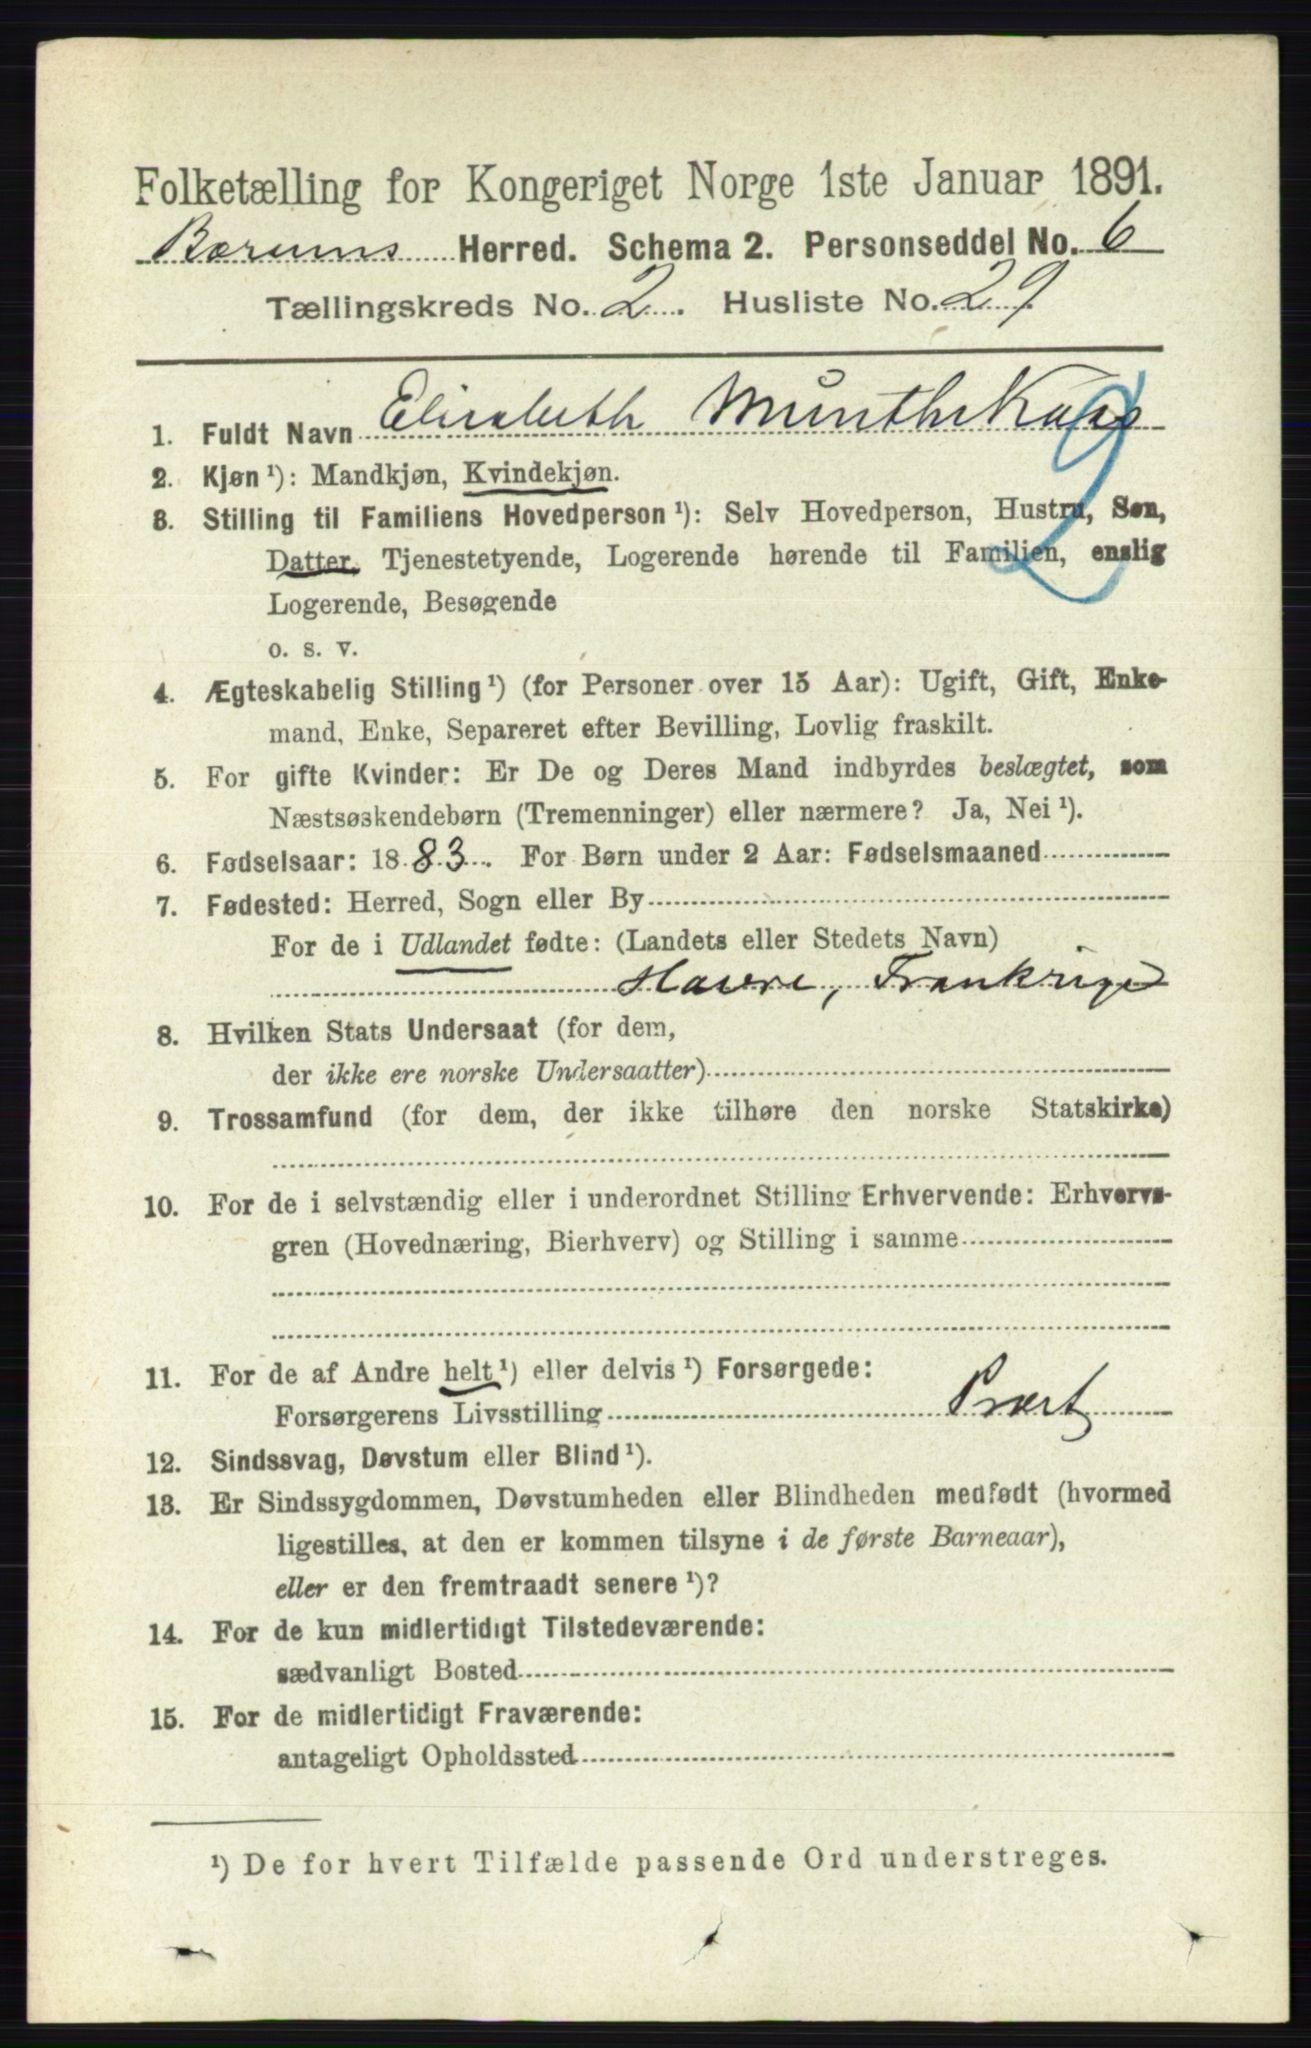 Folketælling for Kongeriget Norge 1ste Januar 1891.
Bærums Herred. Schema 2. Personseddel No. 6
Tællingskreds No. 2. Husliste No. 29
1. Fuldt Navn Elisabeth Munthe Kaas
2
2. Kjøn ¹): Mandkjøn, Kvindekjøn.
3. Stilling til Familiens Hovedperson ¹): Selv Hovedperson, Hustru, Søn,
Datter, Tjenestetyende, Logerende hørende til Familien, enslig
Logerende, Besøgende
o. s. v.
4. Ægteskabelig Stilling ¹) (for Personer over 15 Aar): Ugift, Gift, Enke-
mand, Enke, Separeret efter Bevilling, Lovlig fraskilt.
5. For gifte Kvinder: Er De og Deres Mand indbyrdes beslægtet, som
Næstsøskendebørn (Tremenninger) eller nærmere? Ja, Nei ¹).
6. Fødselsaar: 1883. For Børn under 2 Aar: Fødselsmaaned
7. Fødested: Herred, Sogn eller By
For de i Udlandet fødte: (Landets eller Stedets Navn)
Havre, Frankrige
8. Hvilken Stats Undersaat (for dem,
der ikke ere norske Undersaatter)
9. Trossamfund (for dem, der ikke tilhøre den norske Statskirke)
10. For de i selvstændig eller i underordnet Stilling Erhvervende: Erhvervs-
gren (Hovednæring, Bierhverv) og Stilling i samme
11. For de af Andre helt ¹) eller delvis ¹) Forsørgede:
Forsørgerens Livsstilling Præst
12. Sindssvag, Døvstum eller Blind ¹).
13. Er Sindssygdommen, Døvstumheden eller Blindheden medfødt (hvormed
ligestilles, at den er kommen tilsyne i de første Barneaar),
eller er den fremtraadt senere ¹)?
14. For de kun midlertidigt Tilstedeværende:
sædvanligt Bosted
15. For de midlertidigt Fraværende:
antageligt Opholdssted
¹) De for hvert Tilfælde passende Ord understreges.